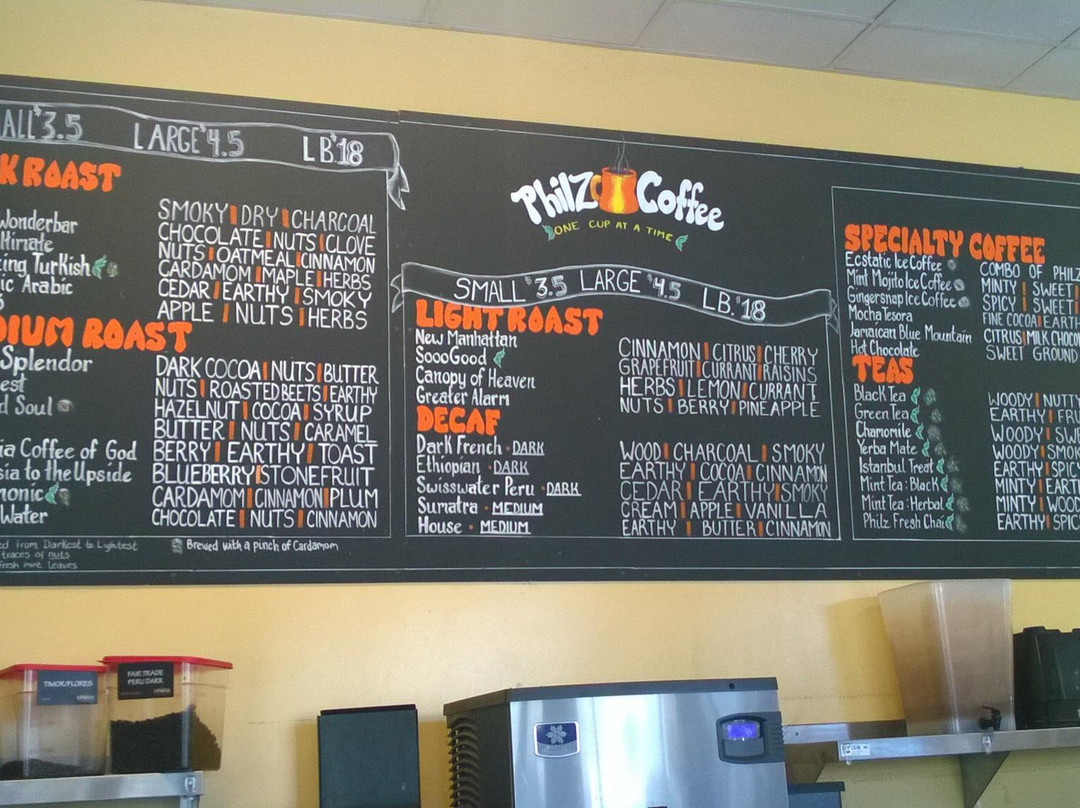 ALL $3.5 LARGE $4.5 LB $18
K ROAST
SMOKY | DRY | CHARCOAL
Wonderbar CHOCOLATE | NUTS | CLOVE
NUTS | OATMEAL | CINNAMON
ing Turkish CARDAMOM | MAPLE | HERBS
ic Arabic CEDAR | EARTHY | SMOKY
APPLE | NUTS | HERBS
DIUM ROAST
Splendor DARK COCOA | NUTS | BUTTER
est NUTS | ROASTED BEETS | EARTHY
d Soul HAZELNUT | COCOA | SYRUP
BUTTER | NUTS | CARAMEL
ia Coffee of God BERRY | EARTHY | TOAST
sia to the Upside BLUEBERRY | STONEFRUIT
monic CARDAMOM | CINNAMON | PLUM
Water CHOCOLATE | NUTS | CINNAMON
od From Darkest to Lightest
traces of nuts
fresh mint leaves
Brewed with a punch of Cardamom
Philz Coffee
ONE CUP AT A TIME
SMALL $3.5 LARGE $4.5 LB. $18
LIGHT ROAST
New Manhattan CINNAMON | CITRUS | CHERRY
SoooGood GRAPEFRUIT | CURRANT | RAISINS
Canopy of Heaven HERBS | LEMON | CURRANT
Greater Alarm NUTS | BERRY | PINEAPPLE
DECAF
Dark French · DARK WOOD | CHARCOAL | SMOKY
Ethiopian · DARK EARTHY | COCOA | CINNAMON
Swisswater Peru · DARK CEDAR | EARTHY | SMOKY
Sumatra · MEDIUM CREAM | APPLE | VANILLA
House · MEDIUM EARTHY | BUTTER | CINNAMON
SPECIALTY COFFEE
Ecstatic Ice Coffee COMBO OF PHILZ
Mint Mojito Ice Coffee MINTY | SWEET |
Gingersnap Ice Coffee SPICY | SWEET |
Mocha Tesora FINE COCOA | EARTH
Jamaican Blue Mountain CITRUS | MILK CHOCO
Hot Chocolate SWEET GROUND
TEAS
Black Tea WOODY | NUTTY
Green Tea EARTHY | FRU
Chamomile WOODY | SWE
Yerba Mate WOODY | SMOK
Istanbul Treat EARTHY | SPICY
Mint Tea: Black MINTY | EART
Mint Tea: Herbal MINTY | WOOD
Philz Fresh Chai EARTHY | SPIC
TIMOR/FLORES
FAIR TRADE
PERU DARK